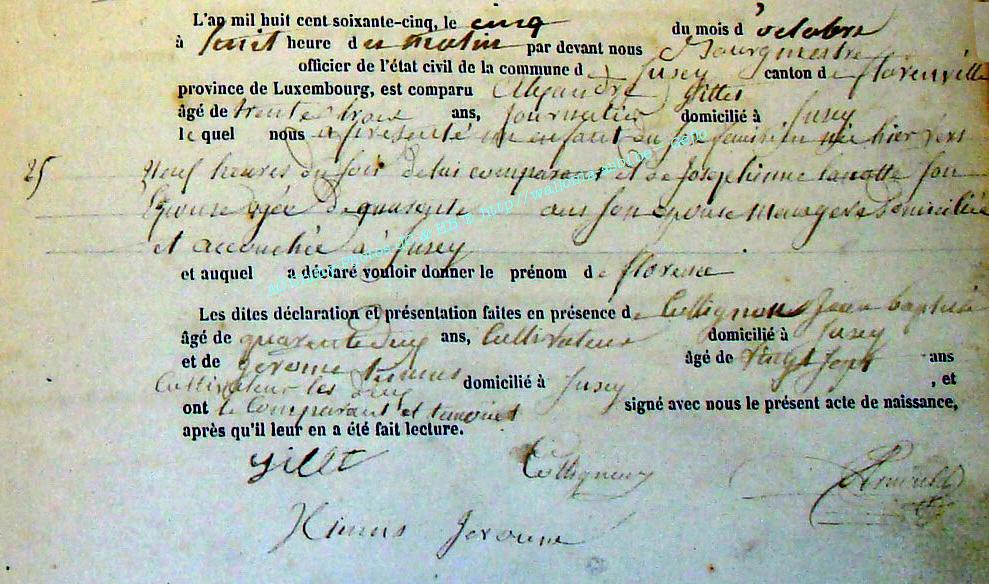 L'an mil huit cent soixante-cinq, le cinq du mois d'octobre
à huit heure du matin par devant nous Bourgmestre
officier de l'état civil de la commune de Jusey canton de florenville
province de Luxembourg, est comparu Alexandre Gillet
âgé de trente trois ans, Journalier domicilié à Jusey
le quel nous a présenté un enfant du sexe féminin née hier vers
25 Neuf heures du soir de lui comparant et de Josephinne lanotte son
Epouse agée de quarante ans son epouse menagere domiciliée
et accouchée à Jusey
et auquel a déclaré vouloir donner le prénom de florence
Les dites déclaration et présentation faites en présence de Collignon Jean baptiste
âgé de quarante ans, Cultivateur domicilié à Jusey
et de Jérome âgé de vingt sept ans
Cultivateur les domicilié à Jusey , et
ont le Comparant et temoins signé avec nous le présent acte de naissance,
après qu'il leur en a été fait lecture.
Gillet Collignon
Jerome